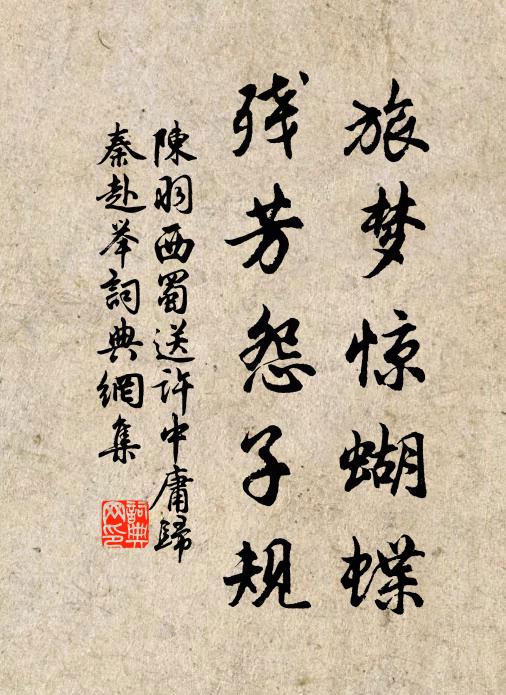 旅梦惊蝴蝶
残芳怨子规
陳羽西蜀送许中庸歸
秦赴举詞典網集
詞典
网印